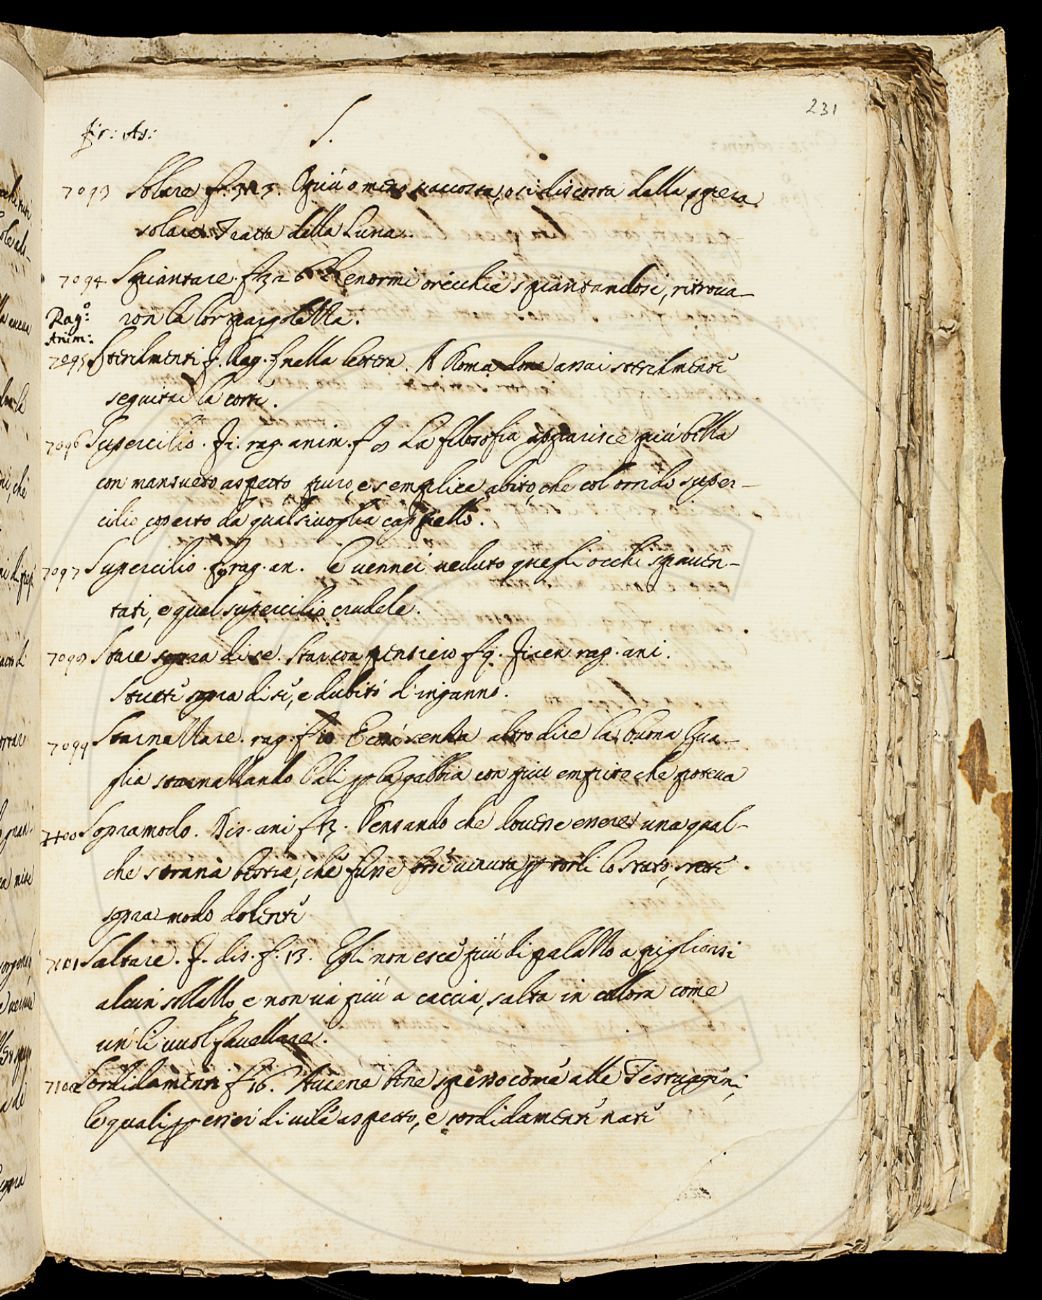 231
Fir: As:
S.
7093 Solare f. 325. O più o meno s'accosta, o si discosta dalla spera
solare. Tratta della Luna.
7094 Spiantare. f. 326. enormi orecchie spiantandosi, ritrova-
ron la lor
Rag:
Anim:
7095 Sterilmente f. Rag. f. nella lettera. A Roma dove assai sterilmente
seguitai la corte.
7096 Supercilio. Fi. rag. anim. f. 8 La filosofia apparisce più bella
con mansueto aspetto puro, e semplice abito, che col orrido super-
cilio, coperto da qualsivoglia cappello.
7097 Supercilio. f. 9 rag. an. E vennei veduto quegli occhi spaven-
tati, e quel supercilio crudele.
7098 Stare sopra di se. Star con pensiero f. 9. Firen. rag. ani.
Stette sopra di se, e dubitò d'inganno.
7099 Starnazzare. rag. f. 10 E così senza altro dire la buona Qua-
glia starnazzando l'ali per la gabbia con più empito che poteva
7100 Sopramodo. Dis. ani f. 13. Pensando che dovesse essere una qual-
che strana bestia, che fusse forse venuta per torli lo stato, stette
sopra modo dolente
7101 Saltare. F. dis. f. 13. Egli non esce più di palazzo a pigliarsi
alcun sollazzo e non va più a caccia, salta in collora come
un li vuol favellare.
7102 Sordidamente f. 16. Auiene bene spesso come alle Testuggini,
le quali per esser di vile aspetto, e sordidamente nate